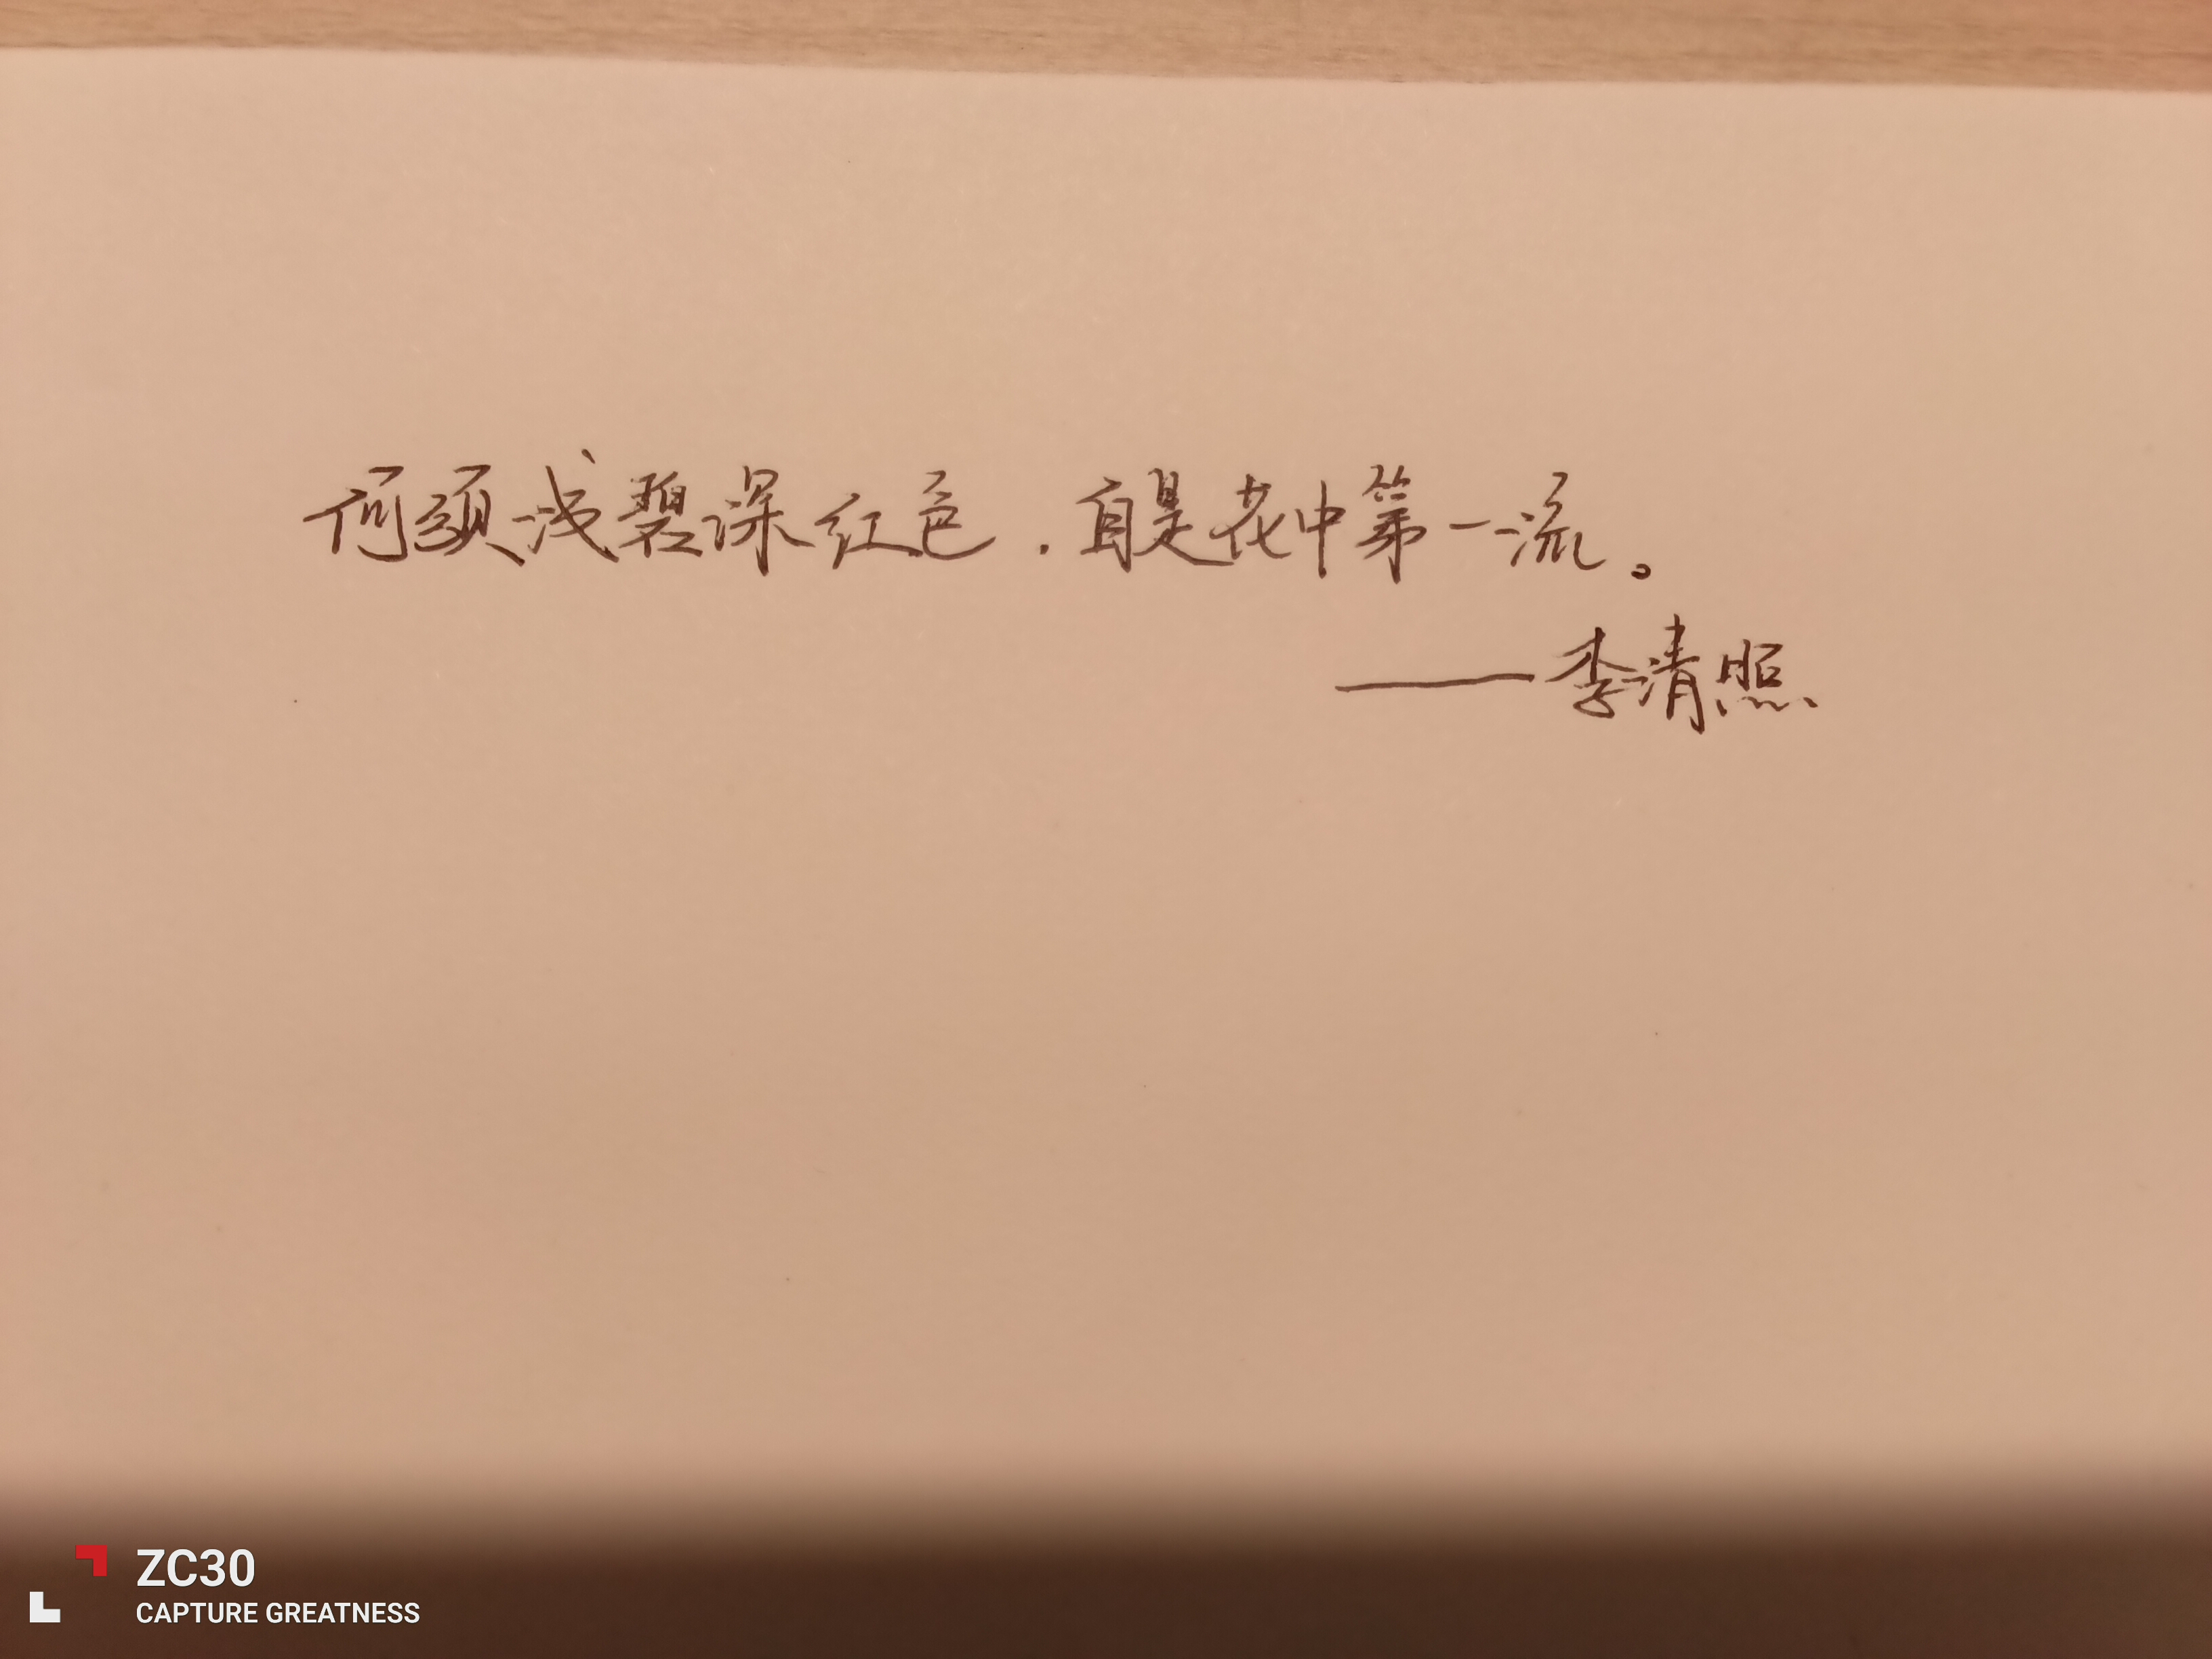 何须浅碧深红色，自是花中第一流。
——李清照
ZC30
CAPTURE GREATNESS